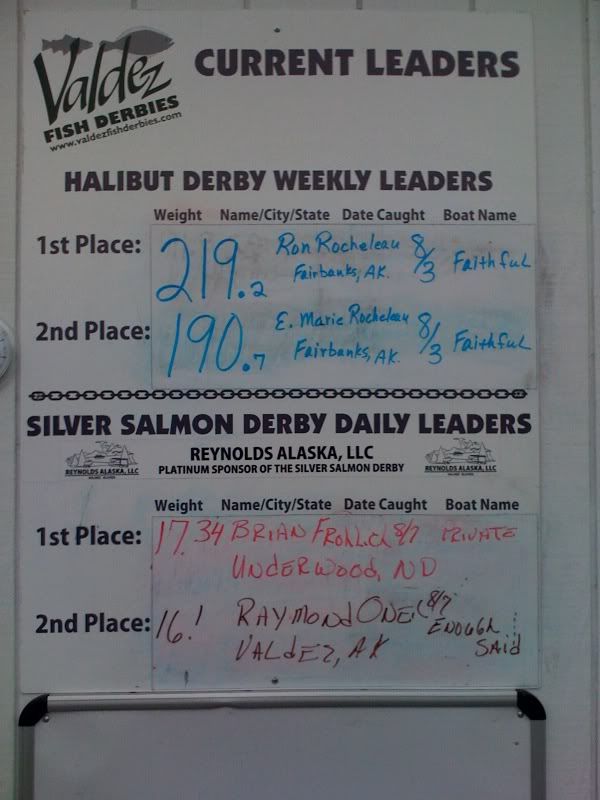 Valdez
FISH DERBIES
www.valdezfishderbies.com
CURRENT LEADERS
HALIBUT DERBY WEEKLY LEADERS
Weight Name/City/State Date Caught Boat Name
1st Place: 219.2 Ron Rocheleau 8/3 Faithful
Fairbanks, AK.
2nd Place: 190.7 E. Marie Rocheleau 8/3 Faithful
Fairbanks, AK.
SILVER SALMON DERBY DAILY LEADERS
REYNOLDS ALASKA, LLC
PLATINUM SPONSOR OF THE SILVER SALMON DERBY
REYNOLDS ALASKA, LLC
REYNOLDS ALASKA, LLC
Weight Name/City/State Date Caught Boat Name
1st Place: 17.34 BRIAN 8/7 PRIVATE
UNDERWOOD, ND
2nd Place: RAYMOND 8/7 ENOUGH SAID
VALDEZ, AK